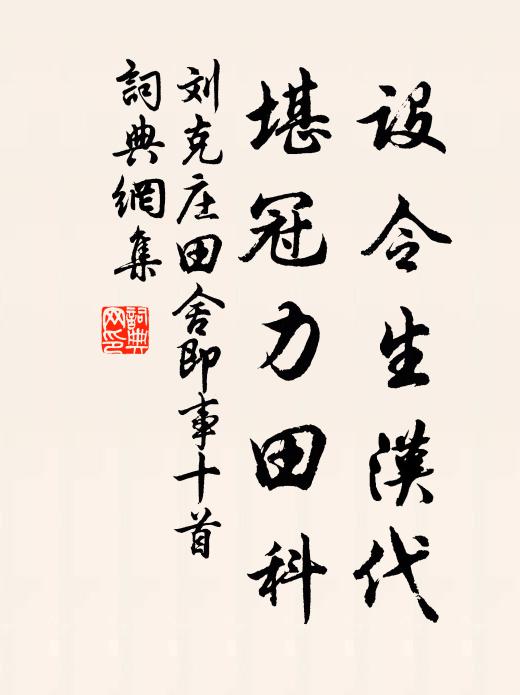 設令生漢代
堪冠力田科
刘克庄田舍即事十首
詞典網集
詞典网印